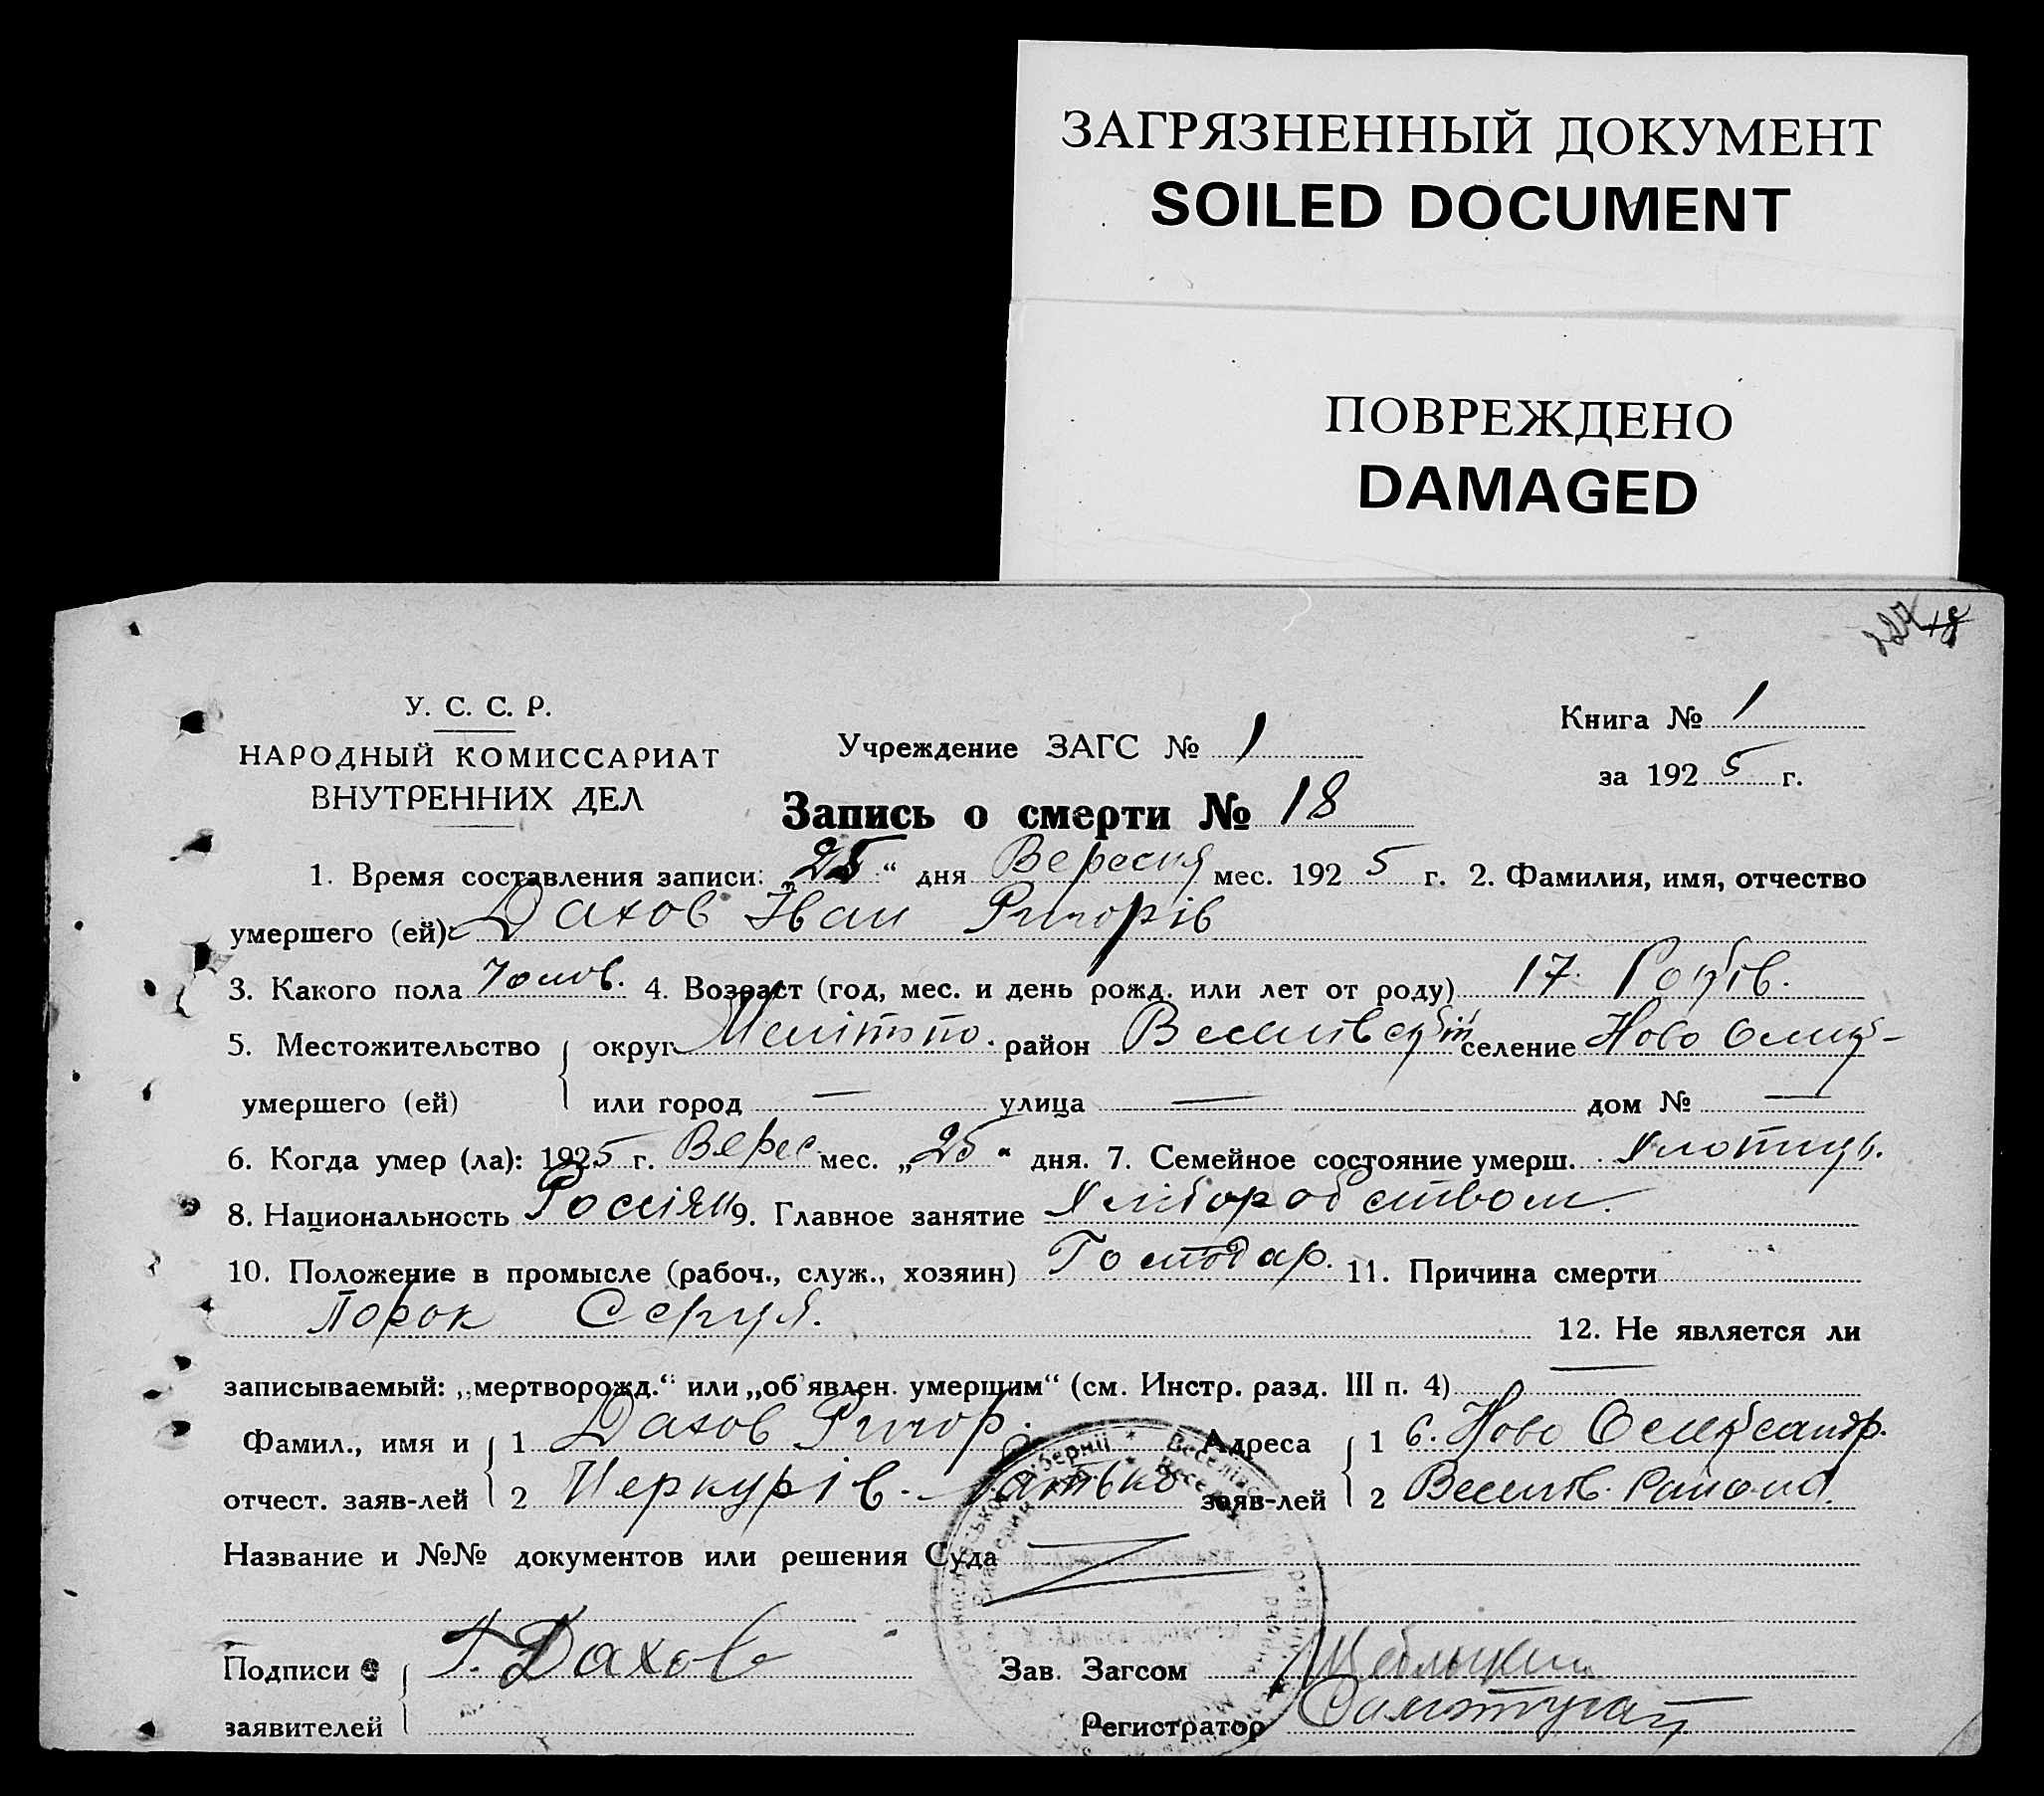 ЗАГРЯЗНЕННЫЙ ДОКУМЕНТ
SOILED DOCUMENT
ПОВРЕЖДЕНО
DAMAGED
227 18
У. С. С. Р.
НАРОДНЫЙ КОМИССАРИАТ
ВНУТРЕННИХ ДЕЛ
Учреждение ЗАГС № 1
Книга № 1
за 1925 г.
Запись о смерти № 18
1. Время составления записи: „25“ дня Вересня мес. 1925 г. 2. Фамилия, имя, отчество
умершего (ей): Дахов Iван Григорiв
3. Какого пола Чолов. 4. Возраст (год, мес. и день рожд. или лет от роду) 17 Годiв.
5. Местожительство округ Мелiтопо. район Веселiвський селение Ново Олекс-
умершего (ей) или город — улица — дом № —
6. Когда умер (ла): 1925 г. Верес мес. „25“ дня. 7. Семейное состояние умерш.
8. Национальность Россiян 9. Главное занятие Хлiборобством.
10. Положение в промысле (рабоч., служ., хозяин) Господар. 11. Причина смерти
Порок Серця. 12. Не является ли
записываемый: „мертворожд.“ или „об'явлен. умершим“ (см. Инстр. разд. III п. 4) —
Фамил., имя и 1 Дахов Григор. Адреса 1 с. Ново Олександр.
отчест. заяв-лей 2 Меркурiв. Батько заяв-лей 2 Веселiв. Району.
Название и №№ документов или решения Суда
Подписи Г. Дахов Зав. Загсом
заявителей Регистратор